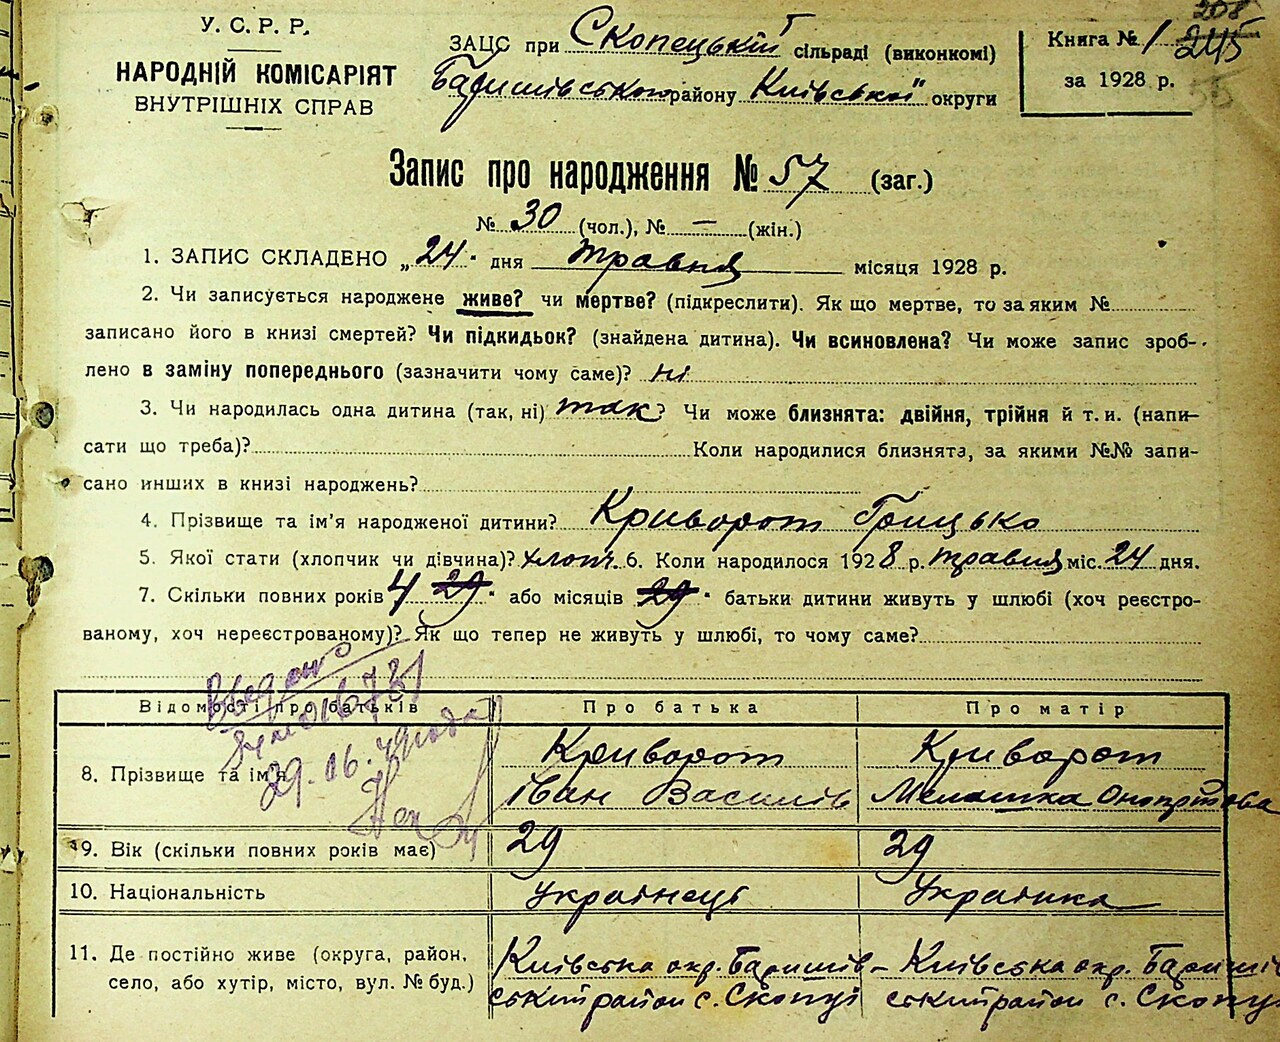 У.С.Р.Р.
НАРОДНІЙ КОМІСАРІЯТ
ВНУТРІШНІХ СПРАВ
ЗАЦС при Скопецькій сільраді (виконкомі)
Баришівського району Київської округи
Книга № 1 208 245
за 1928 р. 55
Запис про народження № 57 (заг.)
№ 30 (чол.), № – (жін.)
1. ЗАПИС СКЛАДЕНО „24" дня травня місяця 1928 р.
2. Чи записується народжене живе? чи мертве? (підкреслити). Як що мертве, то за яким №
записано його в книзі смертей? Чи підкидьок? (знайдена дитина). Чи всиновлена? Чи може запис зроб-
лено в заміну попереднього (зазначити чому саме)? ні
3. Чи народилась одна дитина (так, ні) так? Чи може близнята: двійня, трійня й т. и. (напи-
сати що треба)? Коли народилися близнята, за якими №№ запи-
сано инших в книзі народжень?
4. Прізвище та ім'я народженої дитини? Криворот Грицько
5. Якої стати (хлопчик чи дівчина)? хлопч. 6. Коли народилося 1928 р. травня міс. 24 дня.
7. Скільки повних років 4 29 " або місяців 29 " батьки дитини живуть у шлюбі (хоч реєстро-
ваному, хоч нереєстрованому)? Як що тепер не живуть у шлюбі, то чому саме?
Відомості про батьків Про батька Про матір
29.06.49 года
8. Прізвище та ім'я Криворот Криворот
Іван Василів Мелашка
9. Вік (скільки повних років має) 29 29
10. Національність Українець Українка
11. Де постійно живе (округа, район, Київська окр. Баришів- Київська окр. Бариші
село, або хутір, місто, вул. № буд.) ський район с. Скопці ський район с. Скопці